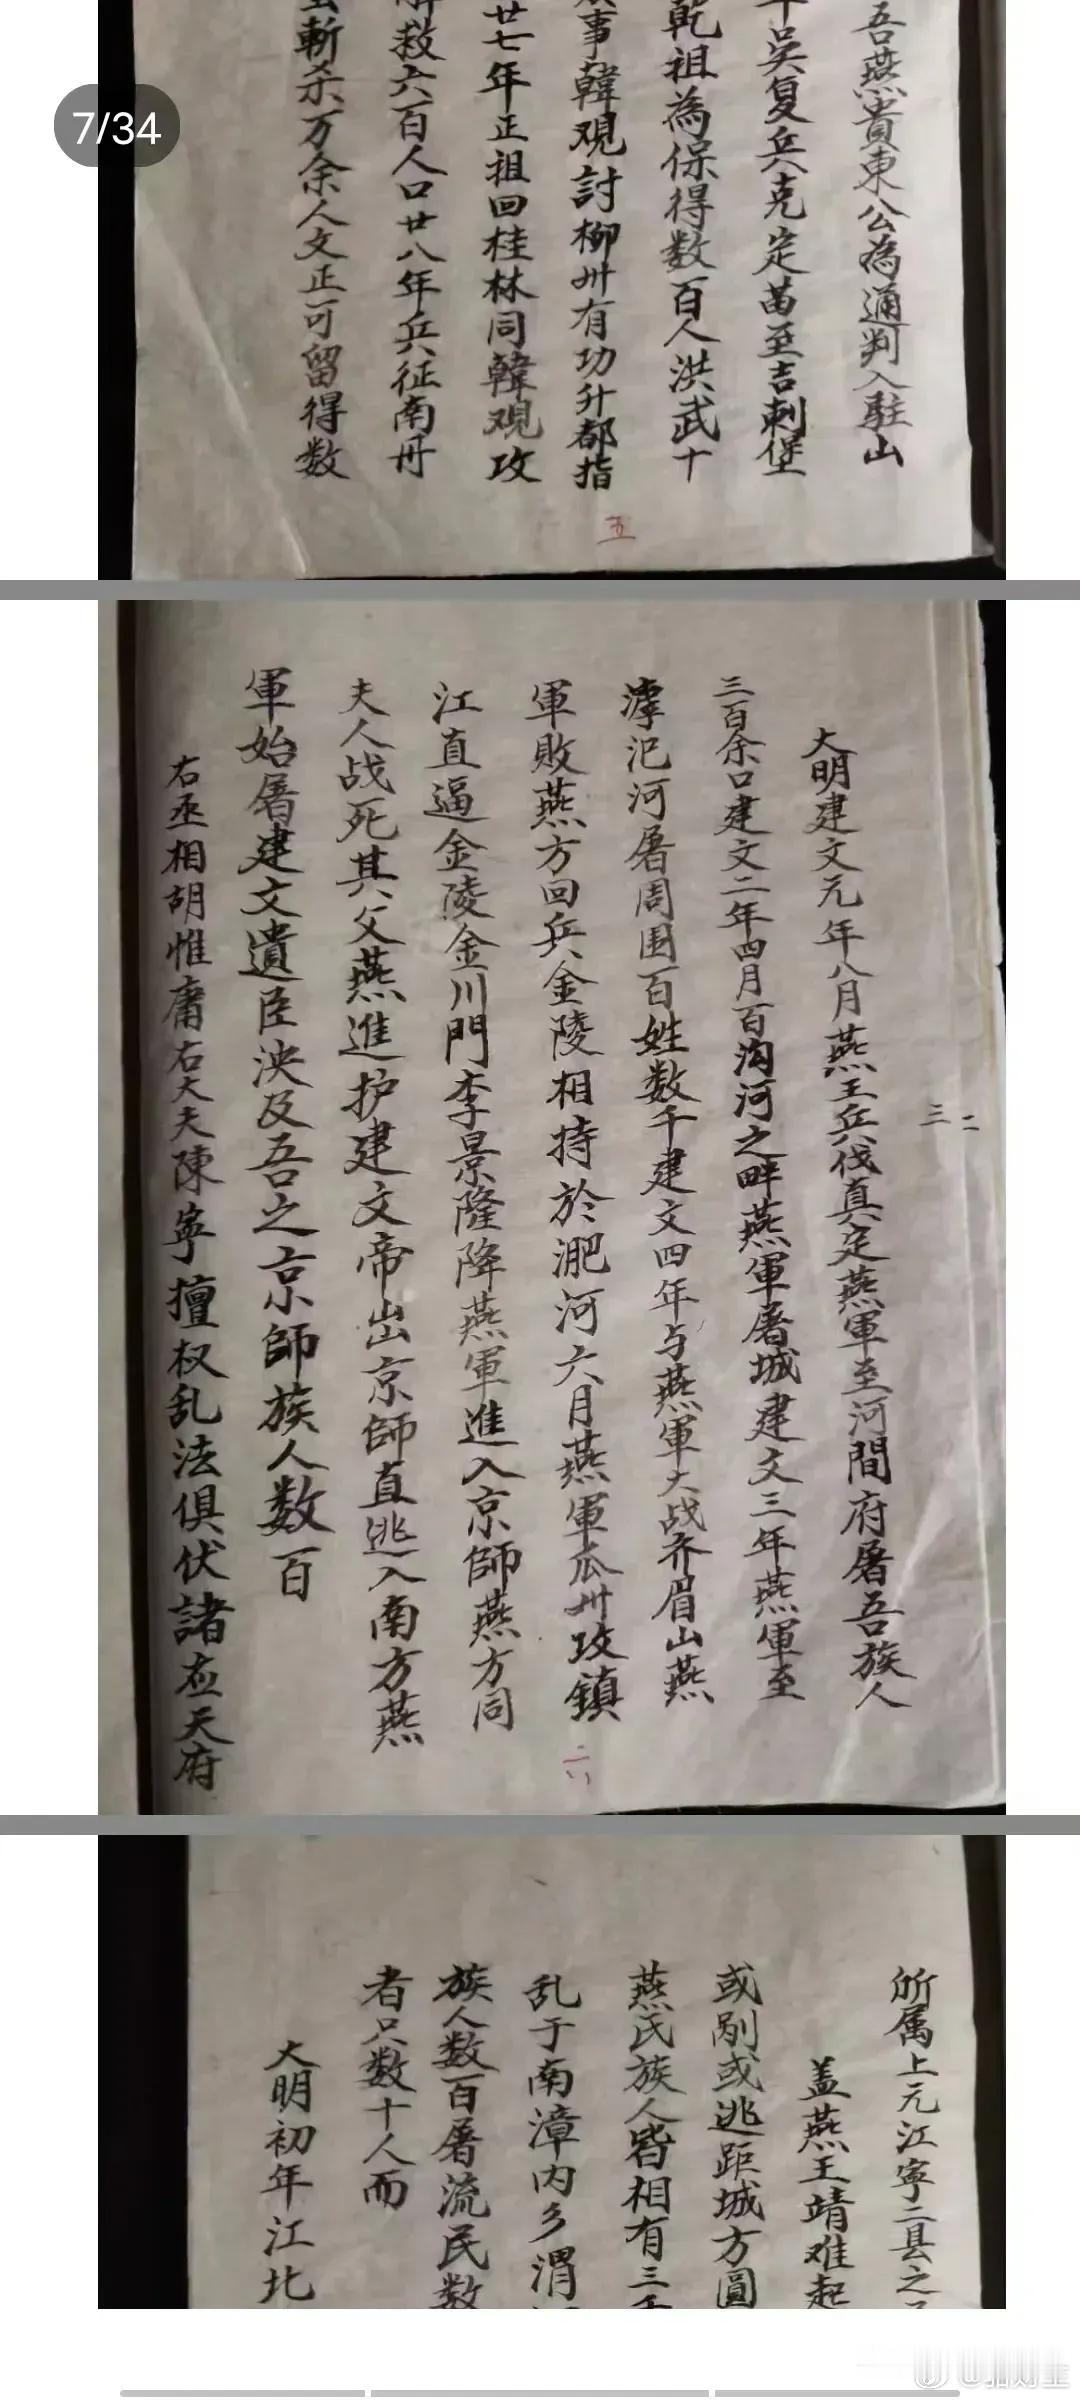 7/34
吾燕贵東公為通判入駐山
年吴复兵克定苗至吉刺堡
乾祖為保得数百人洪武十
事韓观討柳州有功升都指
廿七年正祖回桂林同韓观攻
解救六百人口廿八年兵征南丹
斬杀万余人文正可留得数
五
二
三
大明建文元年八月燕王兵伐真定燕軍至河間府屠吾族人
三百余口建文二年四月百沟河之畔燕軍屠城建文三年燕軍至
滹汜河屠周围百姓数千建文四年与燕軍大战齐眉山燕
軍敗燕方回兵金陵相持於淝河六月燕軍瓜州攻鎮
江直逼金陵金川門李景隆降燕軍進入京師燕方同
夫人战死其父燕進护建文帝出京師直逃入南方燕
軍始屠建文遺臣泱及吾之京師族人数百
右丞相胡惟庸右大夫陳寧擅权乱法俱伏諸应天府
所属上元江寧二县之
盖燕王靖难起
或剐或逃距城方圓
燕氏族人皆相有三千
乱于南漳内乡渭
族人数百屠流民数
者只数十人而
大明初年江北